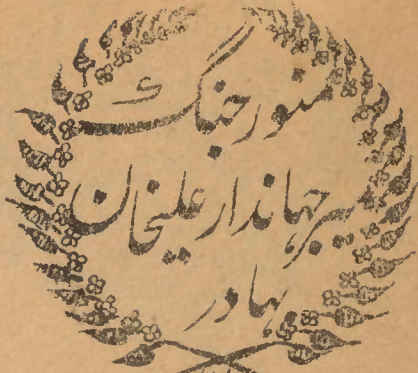 منور جنگ
میر جہاندار علیخان
بہادر